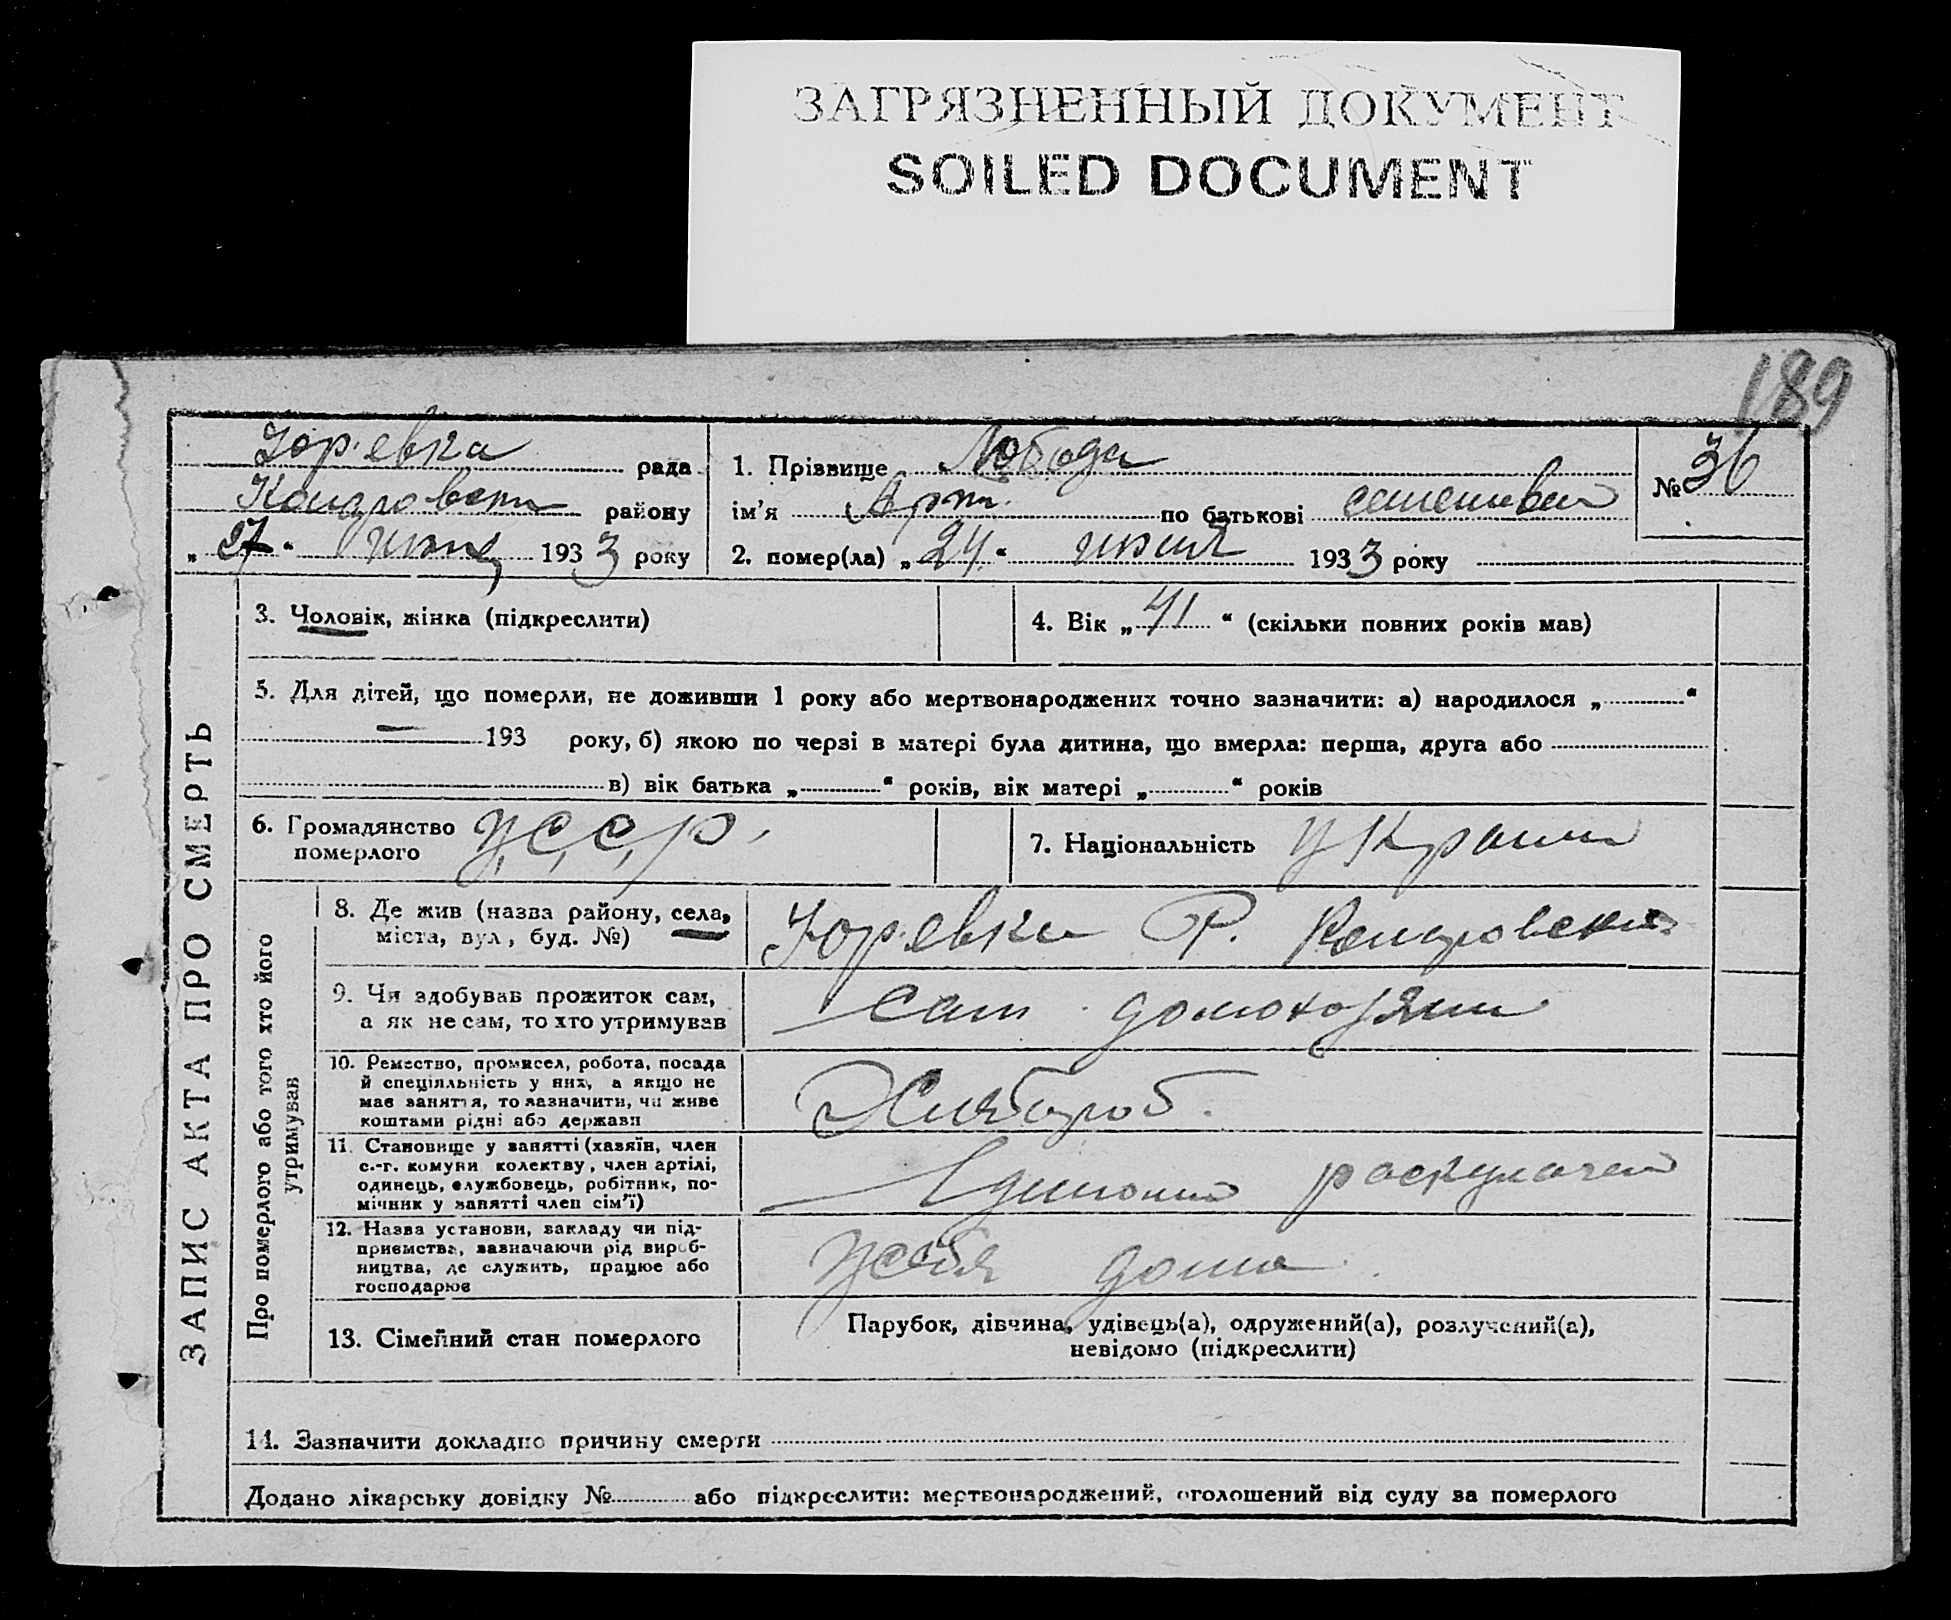 ЗАГРЯЗНЕННЫЙ ДОКУМЕНТ
SOILED DOCUMENT
189
Юр'евка рада
1. Прізвище Лобода
№ 36
району
ім'я Арт. по батькові
„27“ 1933 року
2. помер(ла) „24“ 1933 року
ЗАПИС АКТА ПРО СМЕРТЬ
3. Чоловік, жінка (підкреслити)
4. Вік „41“ (скільки повних років мав)
5. Для дітей, що померли, не доживши 1 року або мертвонароджених точно зазначити: а) народилося „ “
— 193 року, б) якою по черзі в матері була дитина, що вмерла: перша, друга або
в) вік батька „ “ років, вік матері „ “ років
6. Громадянство
померлого
У,С,С,Р,
7. Національність Україн
Про померлого або того хто його
утримував
8. Де жив (назва району, села,
міста, вул, буд. №)
Юр'евка Р.
9. Чи здобував прожиток сам,
а як не сам, то хто утримував
сам
10. Ремество, промисел, робота, посада
й спеціяльність у них, а якщо не
має заняття, то зазначити, чи живе
коштами рідні або держави
Хлібороб.
11. Становище у занятті (хазяїн, член
с.-г. комуни колектву, член артілі,
одинець, службовець, робітник, по-
мічник у занятті член сім'ї)
раскулачен
12. Назва установи, закладу чи під-
приємства, зазначаючи рід вироб-
ництва, де служить, працює або
господарює
У себя дома
13. Сімейний стан померлого
Парубок, дівчина, удівець(а), одружений(а), розлучений(а),
невідомо (підкреслити)
14. Зазначити докладно причину смерти
Додано лікарську довідку № або підкреслити: мертвонароджений, оголошений від суду за померлого